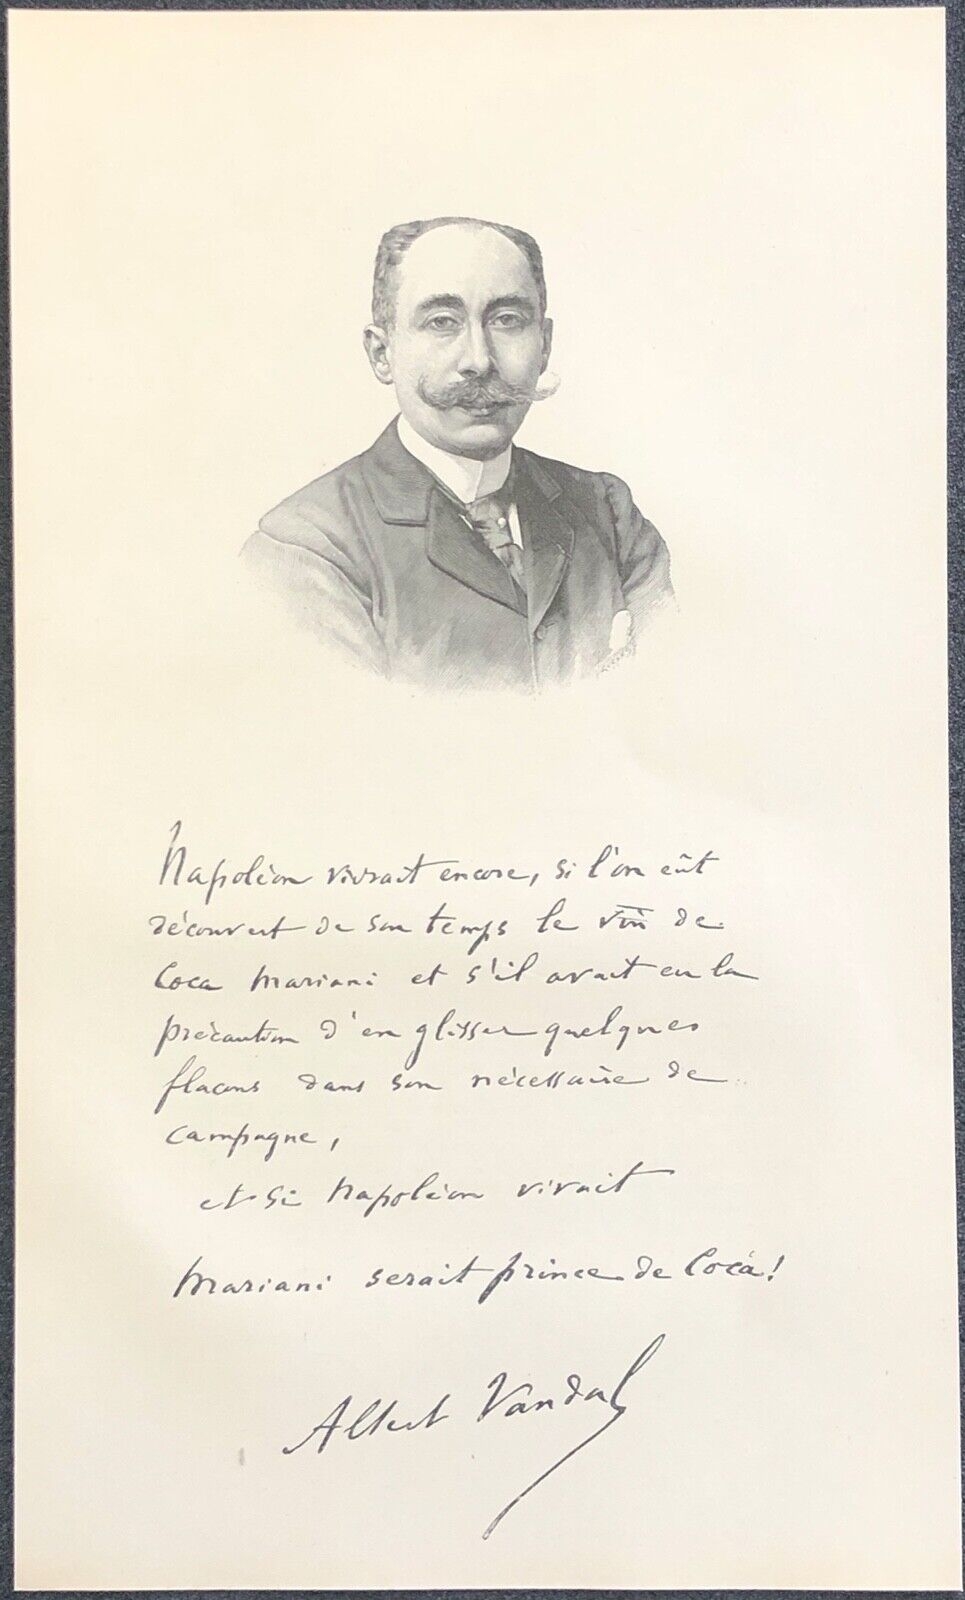 Napoléon vivrait encore, si l'on eût
découvert de son temps le vin de
Coca Mariani et s'il avait eu la
précaution d'en glisser quelques
flacons dans son nécessaire de
campagne,
et si Napoléon vivait
Mariani serait prince de Coca!
Albert Vandal